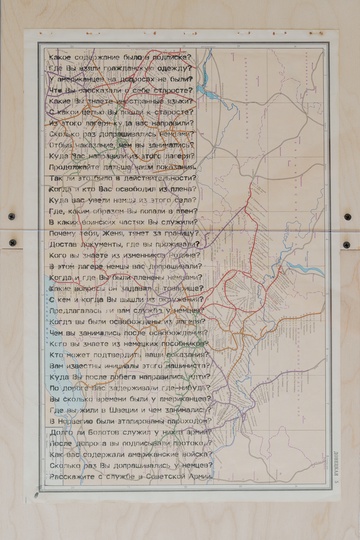 Какое содержание было в подписке?
Где Вы взяли гражданскую одежду?
У американцев на допросах не были?
Что Вы рассказали о себе старосте?
Какие Вы знаете иностранные языки?
С какой целью Вы пошли к старосте?
Из этого лагеря куда вас направили?
Сколько раз допрашивались немцами?
Отбыв наказание, чем вы занимались?
Куда Вас направили из этого лагеря?
Продолжайте дальше ваши показания.
Так ли это было в действительности?
Когда и кто Вас освободил из плена?
Куда вас увели немцы из этого села?
Где, каким образом Вы попали в плен?
В каких воинских частях Вы служили?
Почему тебя, Женя, тянет за границу?
Достав документы, где вы проживали?
Кого вы знаете из изменников Родине?
В этом лагере немцы вас допрашивали?
Когда и где Вы были пленены немцами?
Какие вопросы он задавал
С кем и когда Вы вышли из окружения?
Предлагалась ли вам служба у немцев?
Когда вы были освобождены из лагеря?
Чем вы занимались после освобождения?
Кого вы знаете из немецких пособников?
Кто может подтвердить ваши показания?
Вам известны инициалы этого машиниста?
Куда Вы после побега направились идти?
По дороге Вас задерживали где-нибудь?
Вы сколько времени были у американцев?
Где вы жили в Швеции и чем занимались?
В Норвегию были этапированы пароходом?
Долго ли Болотов служил у
После допроса вы подписывали протокол?
Как вас содержали американские войска?
Сколько раз Вы допрашивались у немцев?
Расскажите о службе в Советской Армии.